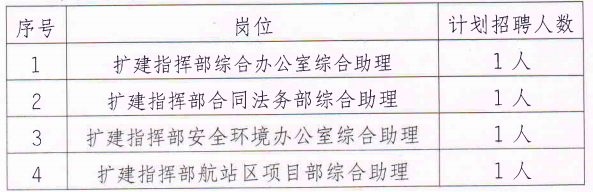 序号 岗位 计划招聘人数
1 扩建指挥部综合办公室综合助理 1人
2 扩建指挥部合同法务部综合助理 1人
3 扩建指挥部安全环境办公室综合助理 1人
4 扩建指挥部航站区项目部综合助理 1人